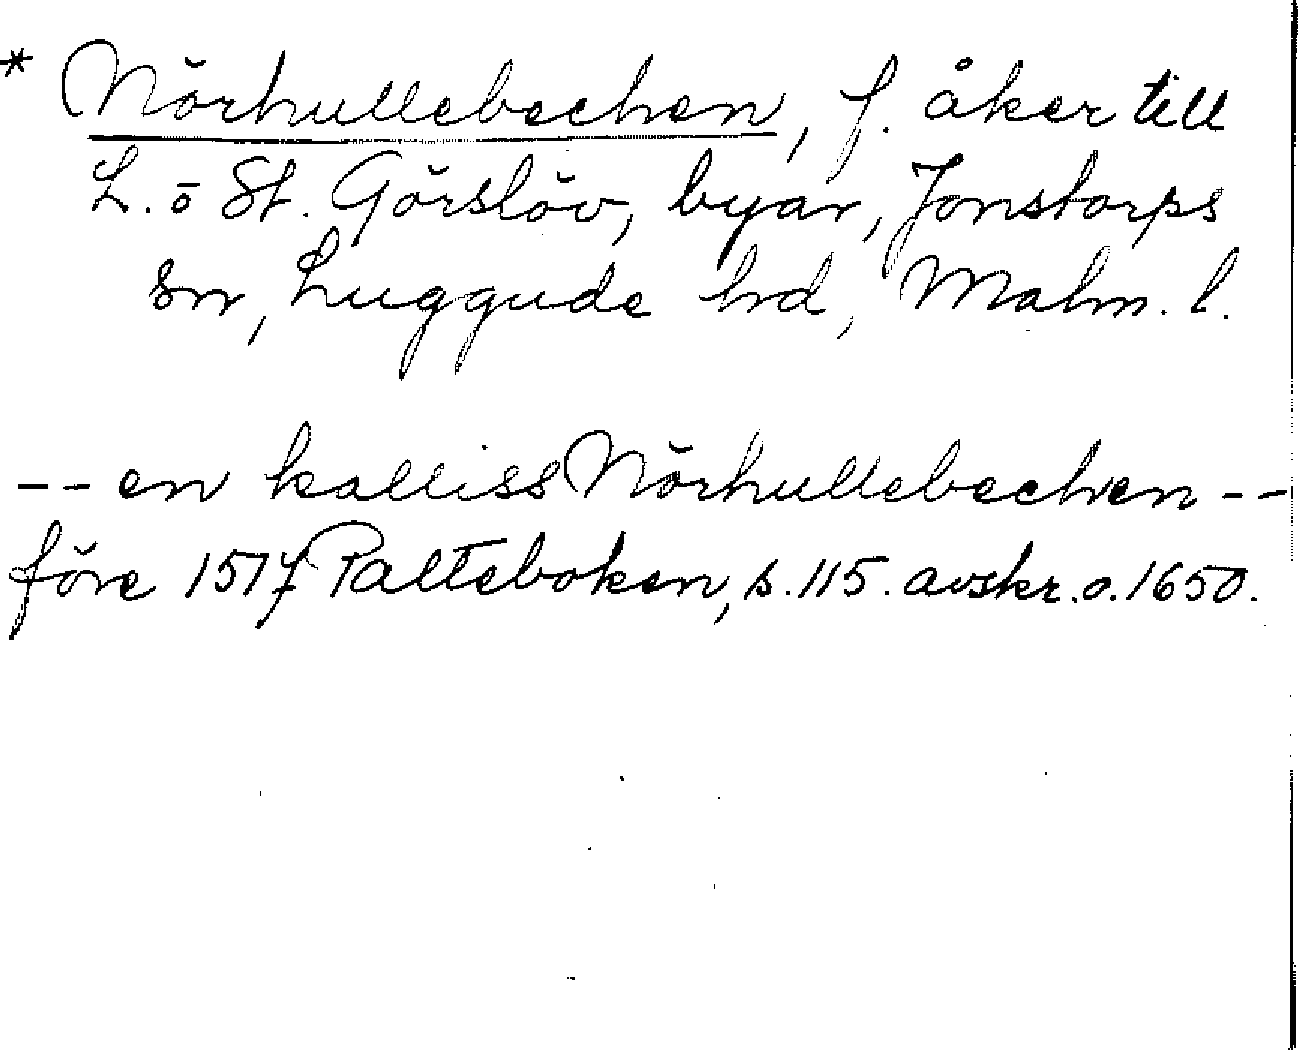 * Nörhullebechen, f. åker till
L. o St. Görslöv, byar, Jonstorps
sn, Luggude hd, Malm. l.
-- en kalliss Nörhullebechen --
före 1517 Palteboken, s. 115. avskr. o. 1650.